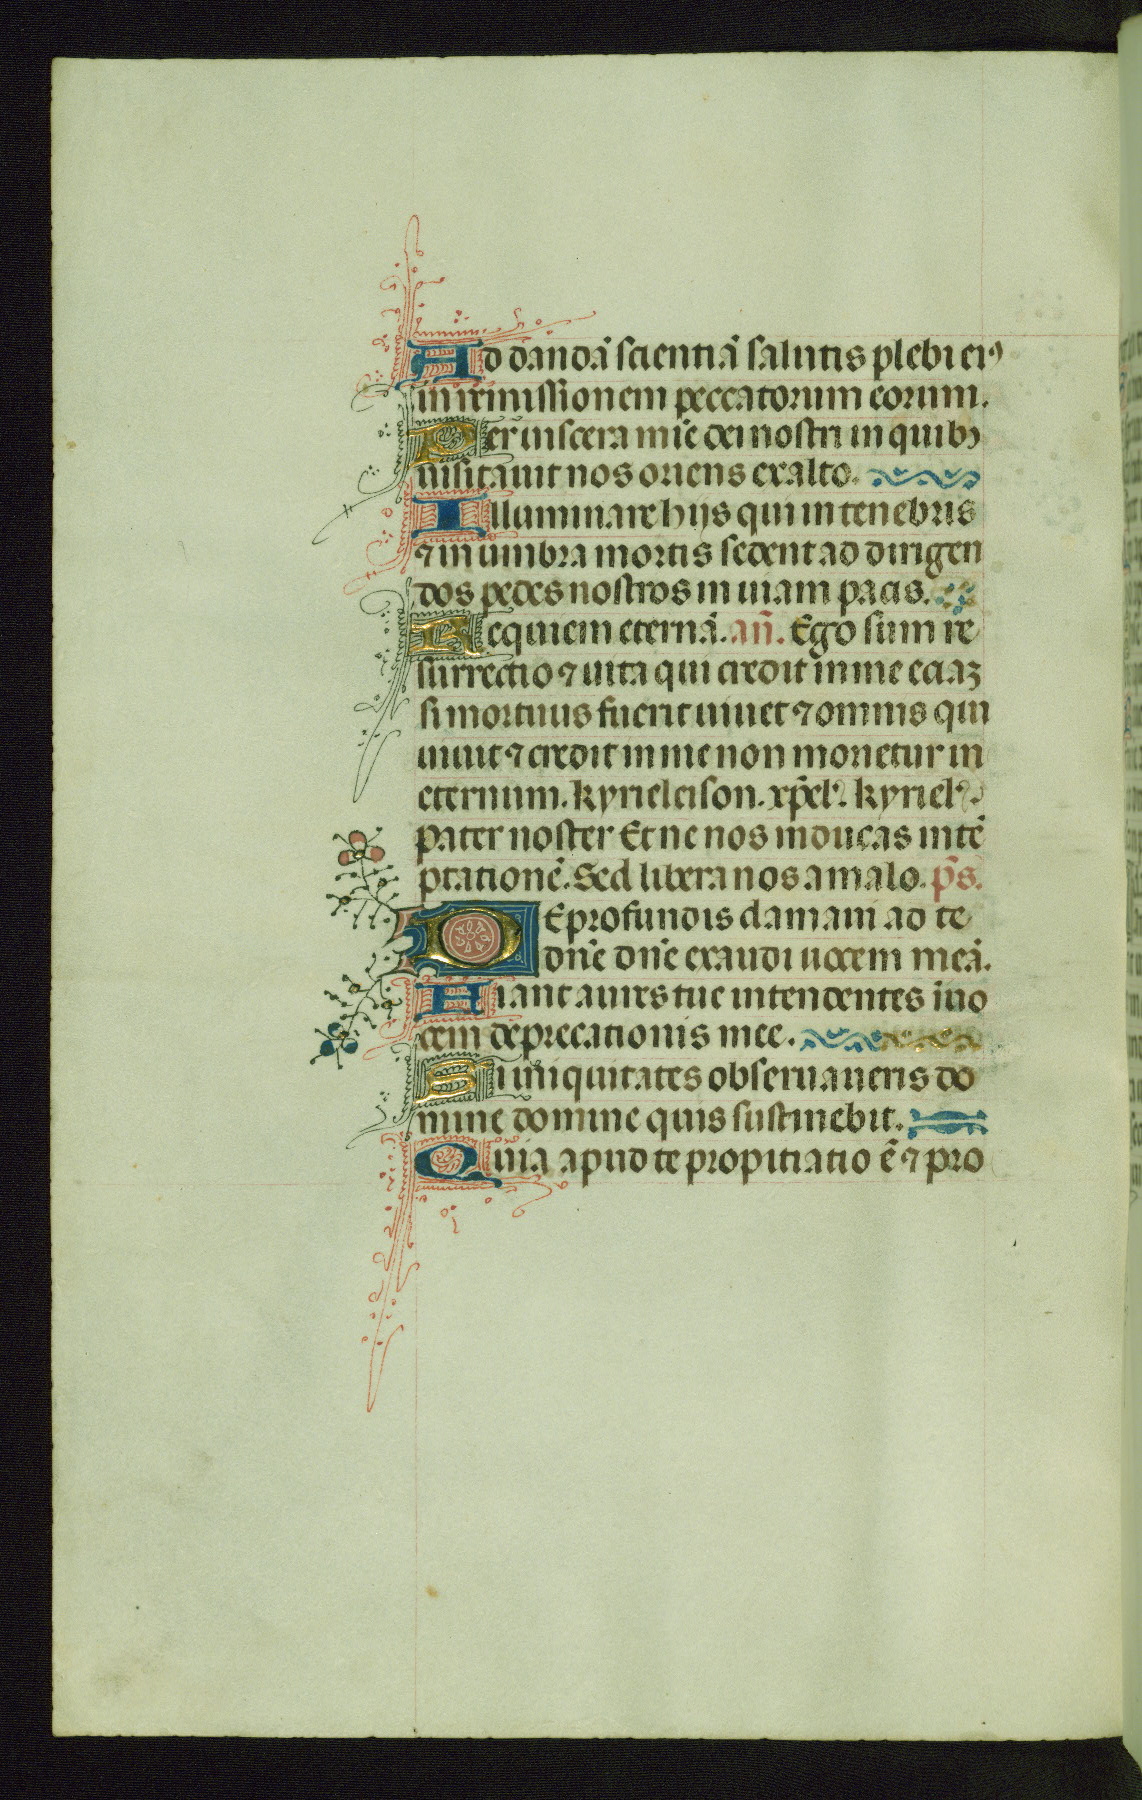 Ad dandā scientiā salutis plebi eiꝰ
in remissionem peccatorum eorum.
Per uiscera mīe dei nostri in quibꝫ
uisitauit nos oriens exalto.
Illuminare hijs qui in tenebris
⁊ in umbra mortis sedent ad dirigen
dos pedes nostros in uiam pacis.
Requiem eternā. añ. Ego sum re
surrectio ⁊ uita qui credit in me eciaꝫ
si mortuus fuerit uiuet ⁊ omnis qui
uiuit ⁊ credit in me non morietur in
eternum. kyrieleison. xp̄el'. kyriel'.
pater noster Et ne nos inducas in tē
ptationē. Sed libera nos a malo. p̄s.
DE profundis clamaui ad te
dn̄e dn̄e exaudi uocem meā.
Fiant aures tue intendentes in uo
cem deprecationis mee.
Si iniquitates obseruaueris do
mine domine quis sustinebit.
Quia apud te propitiatio ē ⁊ pro